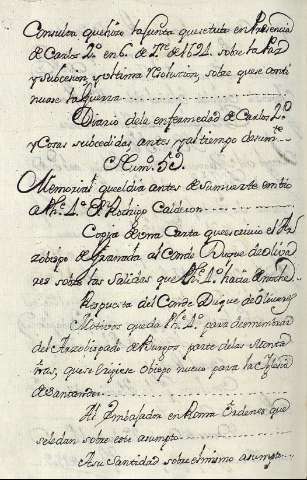 Consulta que hizo la Junta que se tuvo en Presencia
de Carlos 2º en 6 de Dre de 1694. sobre la Paz
y Subcesion, y ultima resolucion, sobre que conti
nuase la Guerra
Diario de la enfermedad de Carlos 2º
y Cosas subcedidas antes, y al tiempo de su mte
Num.º 53
Memorial que el dia antes de su muerte embio
a Ph.e 4.º D.n Rodrigo Calderon
Copia de una Carta que escrivio el Ar
zobispo de Granada al Conde Duque de Oliva
res sobre las Salidas que Ph.e 4.º hacia de noche
Respuesta del Conde Duque de Olivares
Motivos que da Ph.e 4.º para desmembrar
del Arzobispado de Burgos parte de las Monta
ñas, que se erigiese Obispo nuevo para la Iglesia
de Santander
Al Embajador en Roma Ordenes que
se le dan sobre este asumpto
A su Santidad sobre el mismo asumpto